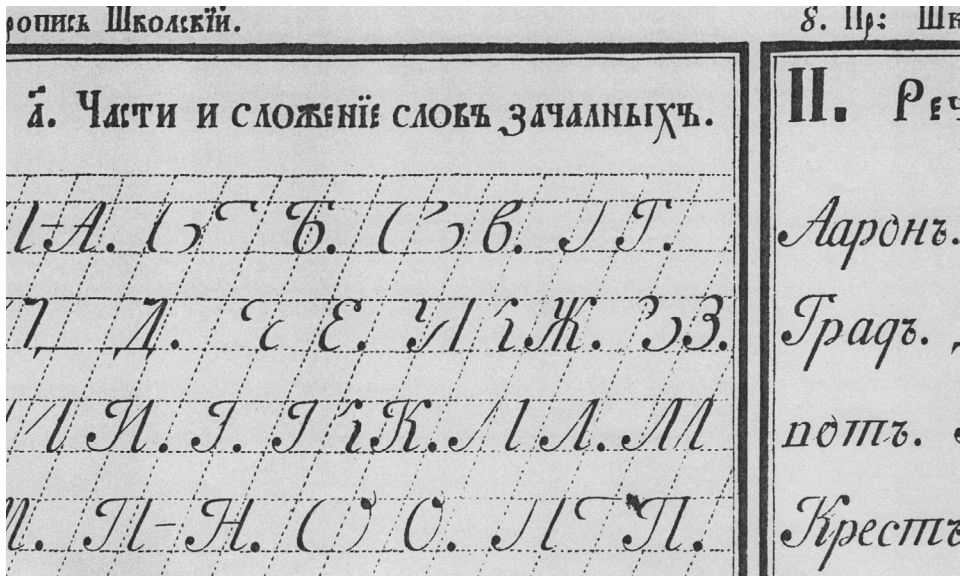 ропись Школскїй.
8. Пр: Шк
а҃. Части и сложенїе словъ зачалныхъ.
А. Б. В. Г.
Д. Е. Ж. З.
И. І. К. Л. М
М. Н. О. П.
II. Реч
Ааронъ.
Градъ.
потъ.
Крестъ